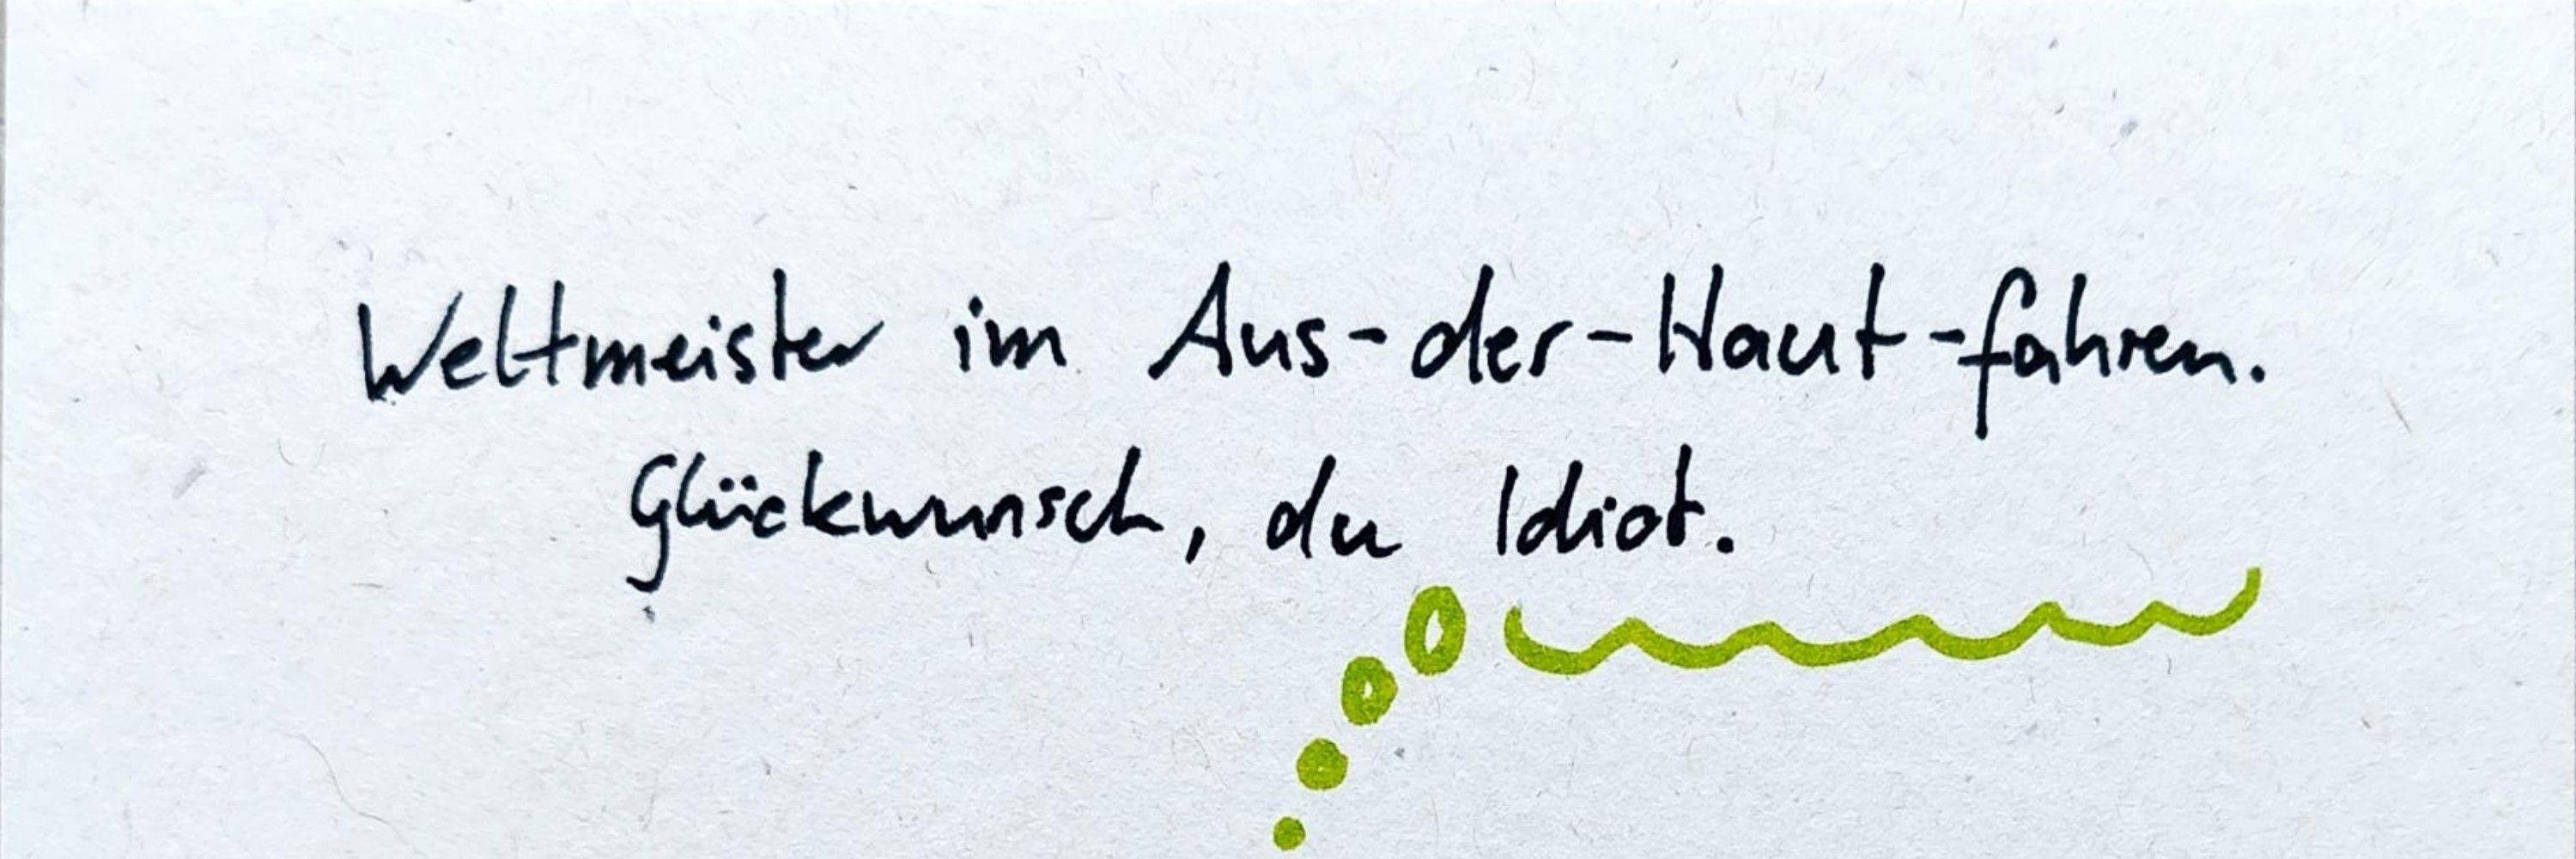 Weltmeister im Aus-der-Haut-fahren.
Glückwunsch, du Idiot.